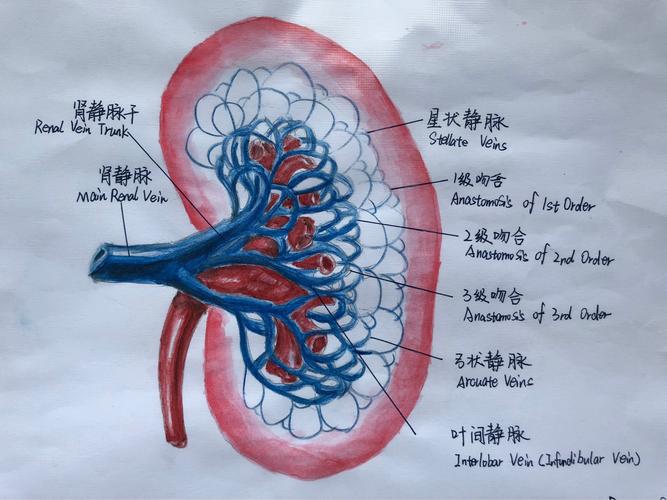 肾静脉干
Renal Vein Trunk
肾静脉
Main Renal Vein
星状静脉
Stellate Veins
1级吻合
Anastomosis of 1st Order
2级吻合
Anastomosis of 2nd Order
3级吻合
Anastomosis of 3rd Order
弓状静脉
Arcuate Veins
叶间静脉
Interlobar Vein (Infundibular Vein)